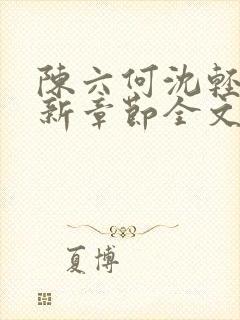 陳六何沈輕
新章節全文
夏博